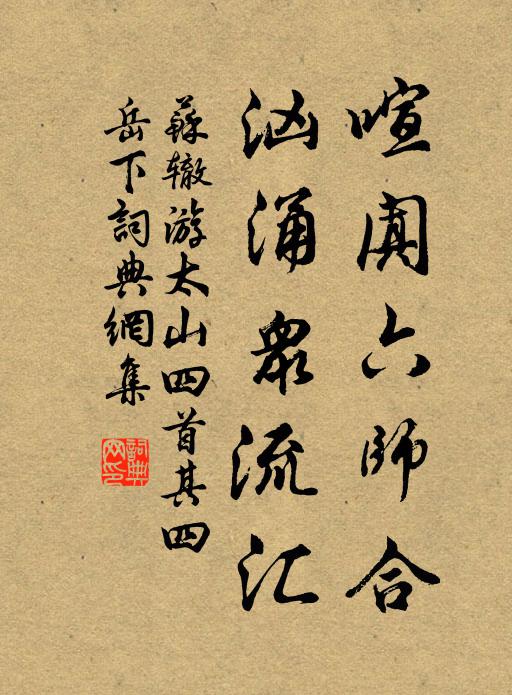 喧阗六師合
汹涌衆流汇
蘇辙游太山四首其四
岳下詞典網集
詞典网印